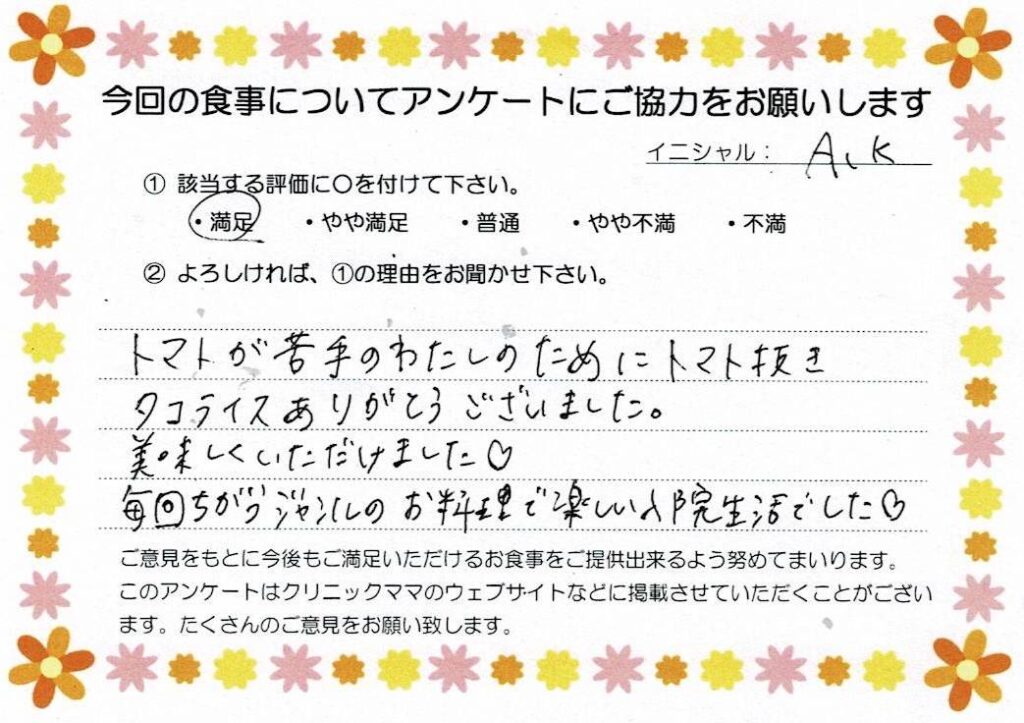 今回の食事についてアンケートにご協力をお願いします
イニシャル： A、K
① 該当する評価に〇を付けて下さい。
・満足 ・やや満足 ・普通 ・やや不満 ・不満
② よろしければ、①の理由をお聞かせ下さい。
トマトが苦手のわたしのためにトマト抜き
タコライスありがとうございました。
美味しくいただけました♡
毎回ちがうジャンルのお料理で楽しい入院生活でした♡
ご意見をもとに今後もご満足いただけるお食事をご提供出来るよう努めてまいります。
このアンケートはクリニックママのウェブサイトなどに掲載させていただくことがござい
ます。たくさんのご意見をお願い致します。